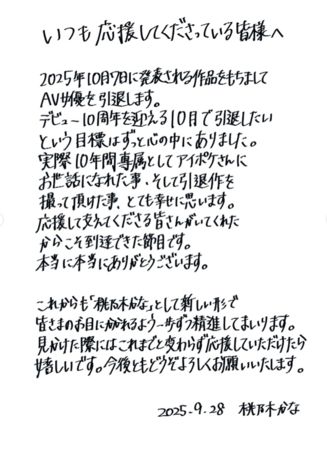 いつも応援してくださっている皆様へ
2025年10月7日に発表される作品をもちまして
AV女優を引退します。
デビュー10周年を迎える10月で引退したい
という目標はずっと心の中にありました。
実際10年間専属としてアイポケさんに
お世話になれた事、そして引退作を
撮って頂けた事、とても幸せに思います。
応援して支えてくださる皆さんがいてくれた
からこそ到達できた節目です。
本当に本当にありがとうございます。
これからも「桃乃木かな」として新しい形で
皆さまのお目にかかれるよう一歩ずつ精進してまいります。
見かけた際にはこれまでと変わらず応援していただけたら
嬉しいです。今後ともどうぞよろしくお願いいたします。
2025.9.28 桃乃木かな